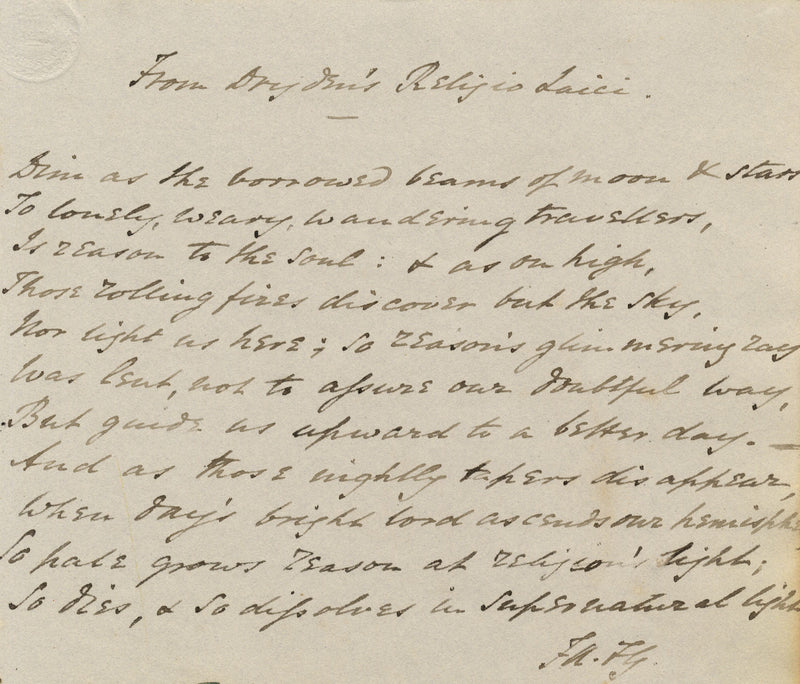 From Dryden's Religio Laici.
Dim as the borrowed beams of moon & stars
To lonely, weary, wandering travellers,
Is reason to the Soul: & as on high,
Those rolling fires discover but the sky,
Nor light us here; so reason's glimmering ray
Was lent, not to assure our doubtful way,
But guide us upward to a better day. —
And as those nightly tapers disappear,
When day's bright lord ascends our hemisphe
So pale grows reason at religion's light;
So dies, & so dissolves in supernatural light